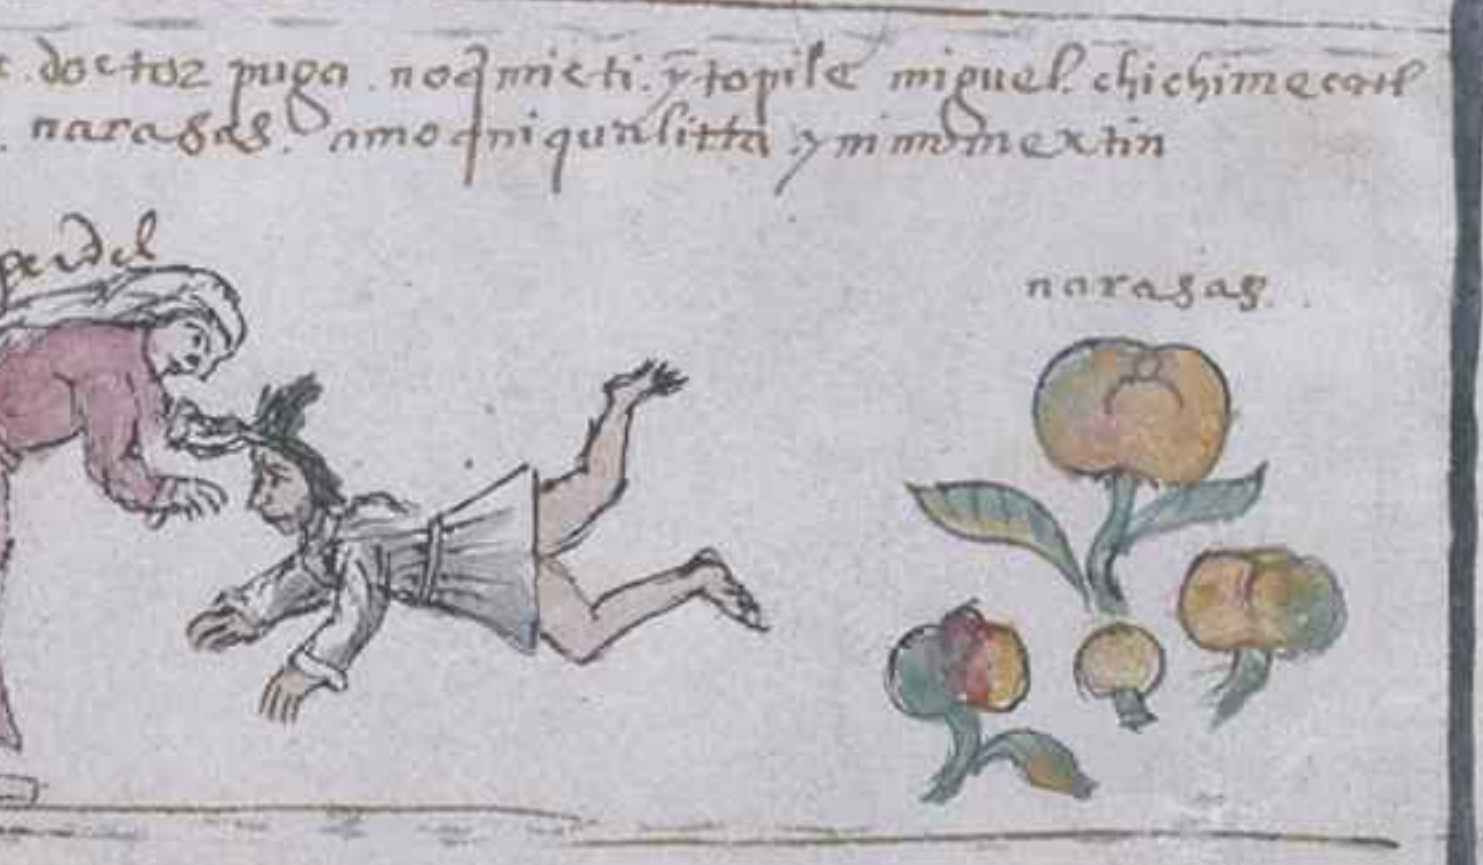 doctor puga . noq̄micti . ȳ topile miguel . chichimecatl
. narasas . amo q̄niqualitta . yn inimextin
narasas .